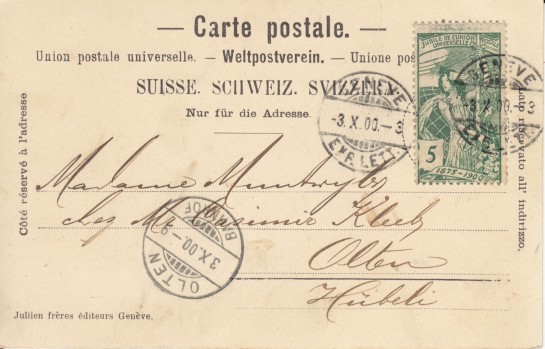 — Carte postale. —
Union postale universelle. — Weltpostverein. — Unione postale
SUISSE. SCHWEIZ. SVIZZERA.
Nur für die Adresse.
Côté réservé à l'adresse.
Lato riservato all' indirizzo.
JUBILÉ DE L'UNION
UNIVERSELLE
5
1875-1900
GENÈVE
-3.X.00.-3
EXP. LETT.
GENÈVE
-3.X.00.-3
EXP. LETT.
Madame Muntwyler
chez Mr Casimir Kleib
Olten
Hübeli
OLTEN
3.X.00.-9
BAHNHOF
Julien frères éditeurs Genève.